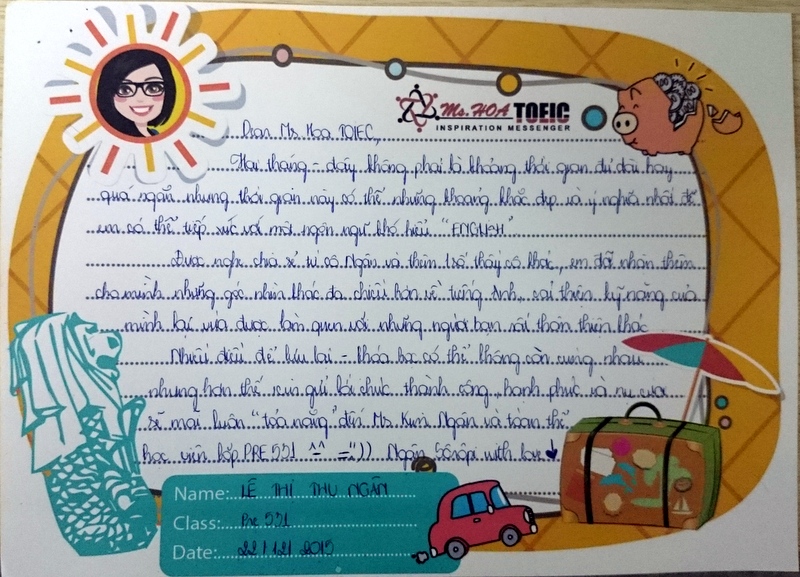 Ms. HOA TOEIC
INSPIRATION MESSENGER
Dear Ms Hoa TOEIC,
Hai tháng - đấy không phải là khoảng thời gian đủ dài hay
quá ngắn nhưng thời gian này có thể những khoảng khắc đẹp và ý nghĩa nhất để
em có thể tiếp xúc với một ngôn ngữ khó hiểu "ENGLISH"
Được nghe chia sẻ từ cô Ngân và thêm 1 số thầy cô khác, em đã nhận thêm
cho mình những góc nhìn khác đa chiều hơn về tiếng Anh, cải thiện kỹ năng của
mình lại vừa được làm quen với những người bạn rất thân thiện khác
Nhiều điều để lưu lại - khóa học có thể không còn cùng nhau
nhưng hơn thế xin gửi lời chúc thành công, hạnh phúc và nụ cười
sẽ mãi luôn "tỏa nắng" đến Ms. Kim Ngân và toàn thể
học viên lớp PRE 531 ^^ =")) Ngân with love
Name: LÊ THỊ THU NGÂN
Class: Pre 531
Date: 22/12/2015